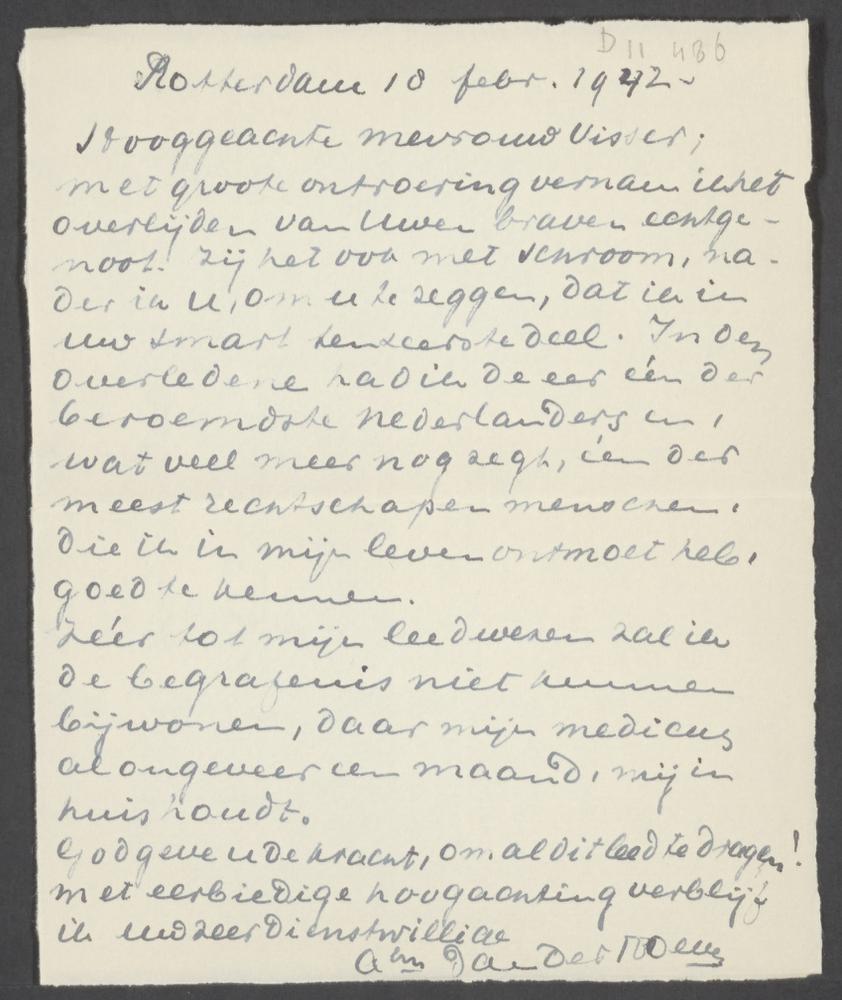 D 11 486
Rotterdam 18 febr. 1942-
Hooggeachte mevrouw Visser;
met groote ontroering vernam ik het
overlijden van Uwen braven echtge-
noot. Zij het ook met schroom, na-
der ik U, om u te zeggen, dat ik in
uw smart tenzeerste deel. In den
overledene had ik de eer één der
beroemdste Nederlanders en,
wat veel meer nog zegt, één der
meest rechtschapen menschen,
die ik in mijn leven ontmoet heb,
goed te kennen.
Zéér tot mijn leedwezen zal ik
de begrafenis niet kunnen
bijwonen, daar mijn medicus
al ongeveer een maand, mij in
huis houdt.
God geve u de kracht, om al dit leed te dragen!
met eerbiedige hoogachting verblijf
ik uw zeer dienstwillige
Abm van der